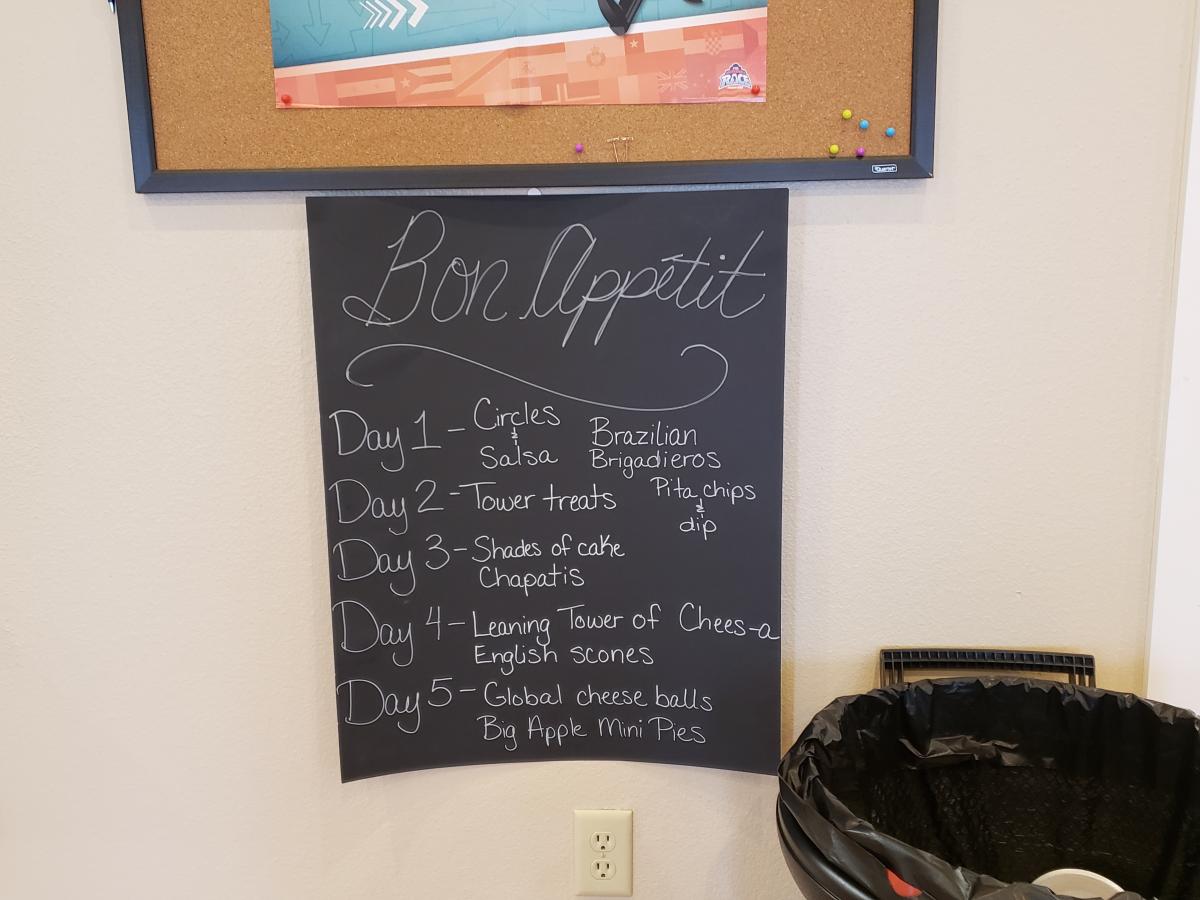 RACE
Quartet
Bon Appétit
Day 1 - Circles & Salsa Brazilian Brigadieros
Day 2 - Tower treats Pita chips & dip
Day 3 - Shades of cake
Chapatis
Day 4 - Leaning Tower of Chees-a
English scones
Day 5 - Global cheese balls
Big Apple Mini Pies